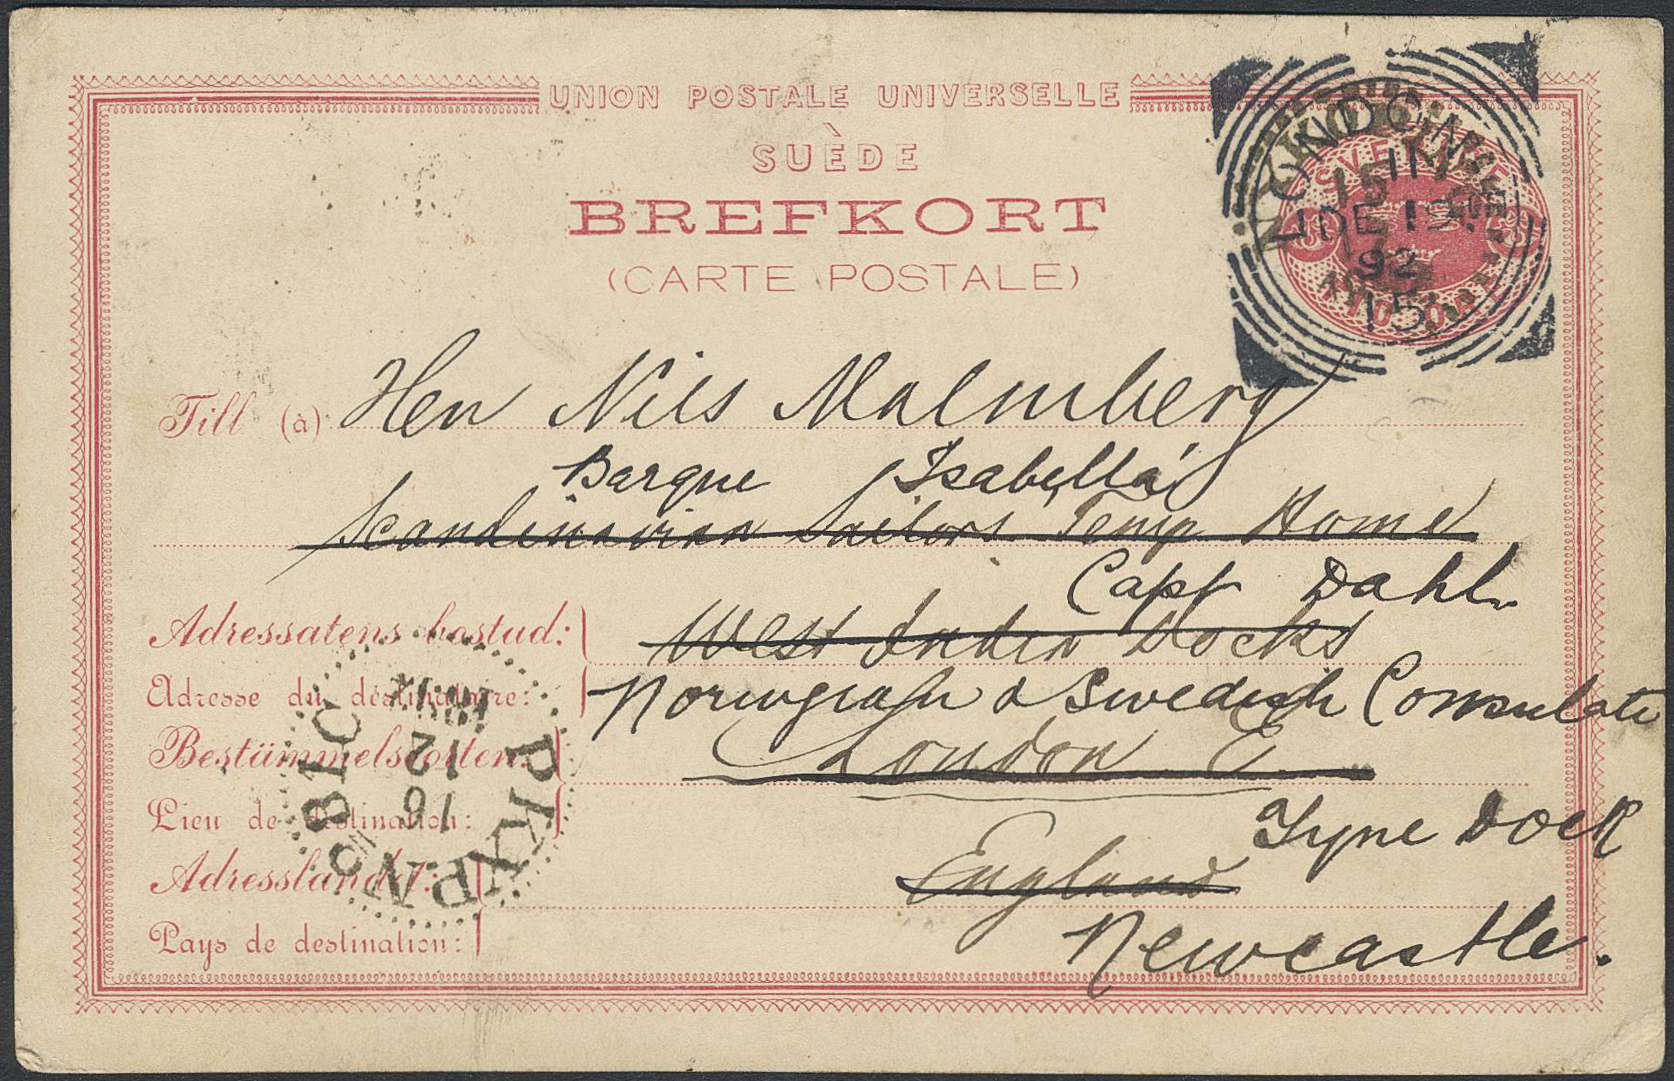 UNION POSTALE UNIVERSELLE
SUÈDE
BREFKORT
(CARTE POSTALE)
LONDON
11
DE 19
92
15
Till (à) Herr Nils Malmberg
Barque Isabella
Scandinavian Sailors Temp Home
Capt Dahl
Adressatens bostad:
West India Docks
Adresse du destinataire:
Norwegian & Swedish Consulate
Bestämmelseorten:
London E.
Lieu de destination:
Tyne Dock
Adresslandet:
England
Pays de destination:
Newcastle.
PKXP No 81 C
16
12